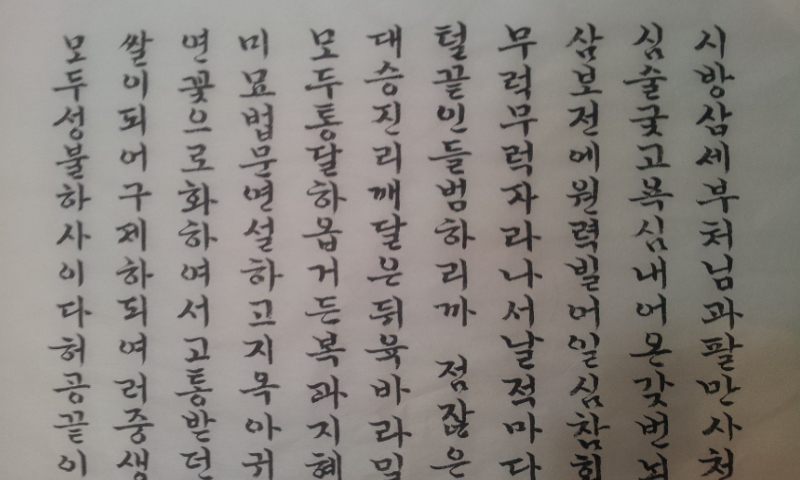 시방삼세부처님과팔만사천
심술궂고복심내어온갖번뇌
삼보전에원력빌어일심참회
무럭무럭자라나서날적마다
털끝인들범하리까 점잖은
대승진리깨달은뒤육바라밀
모두통달하옵거든복과지혜
미묘법문연설하고지옥아귀
연꽃으로화하여서고통받던
쌀이되어구제하되여러중생
모두성불하사이다허공끝이